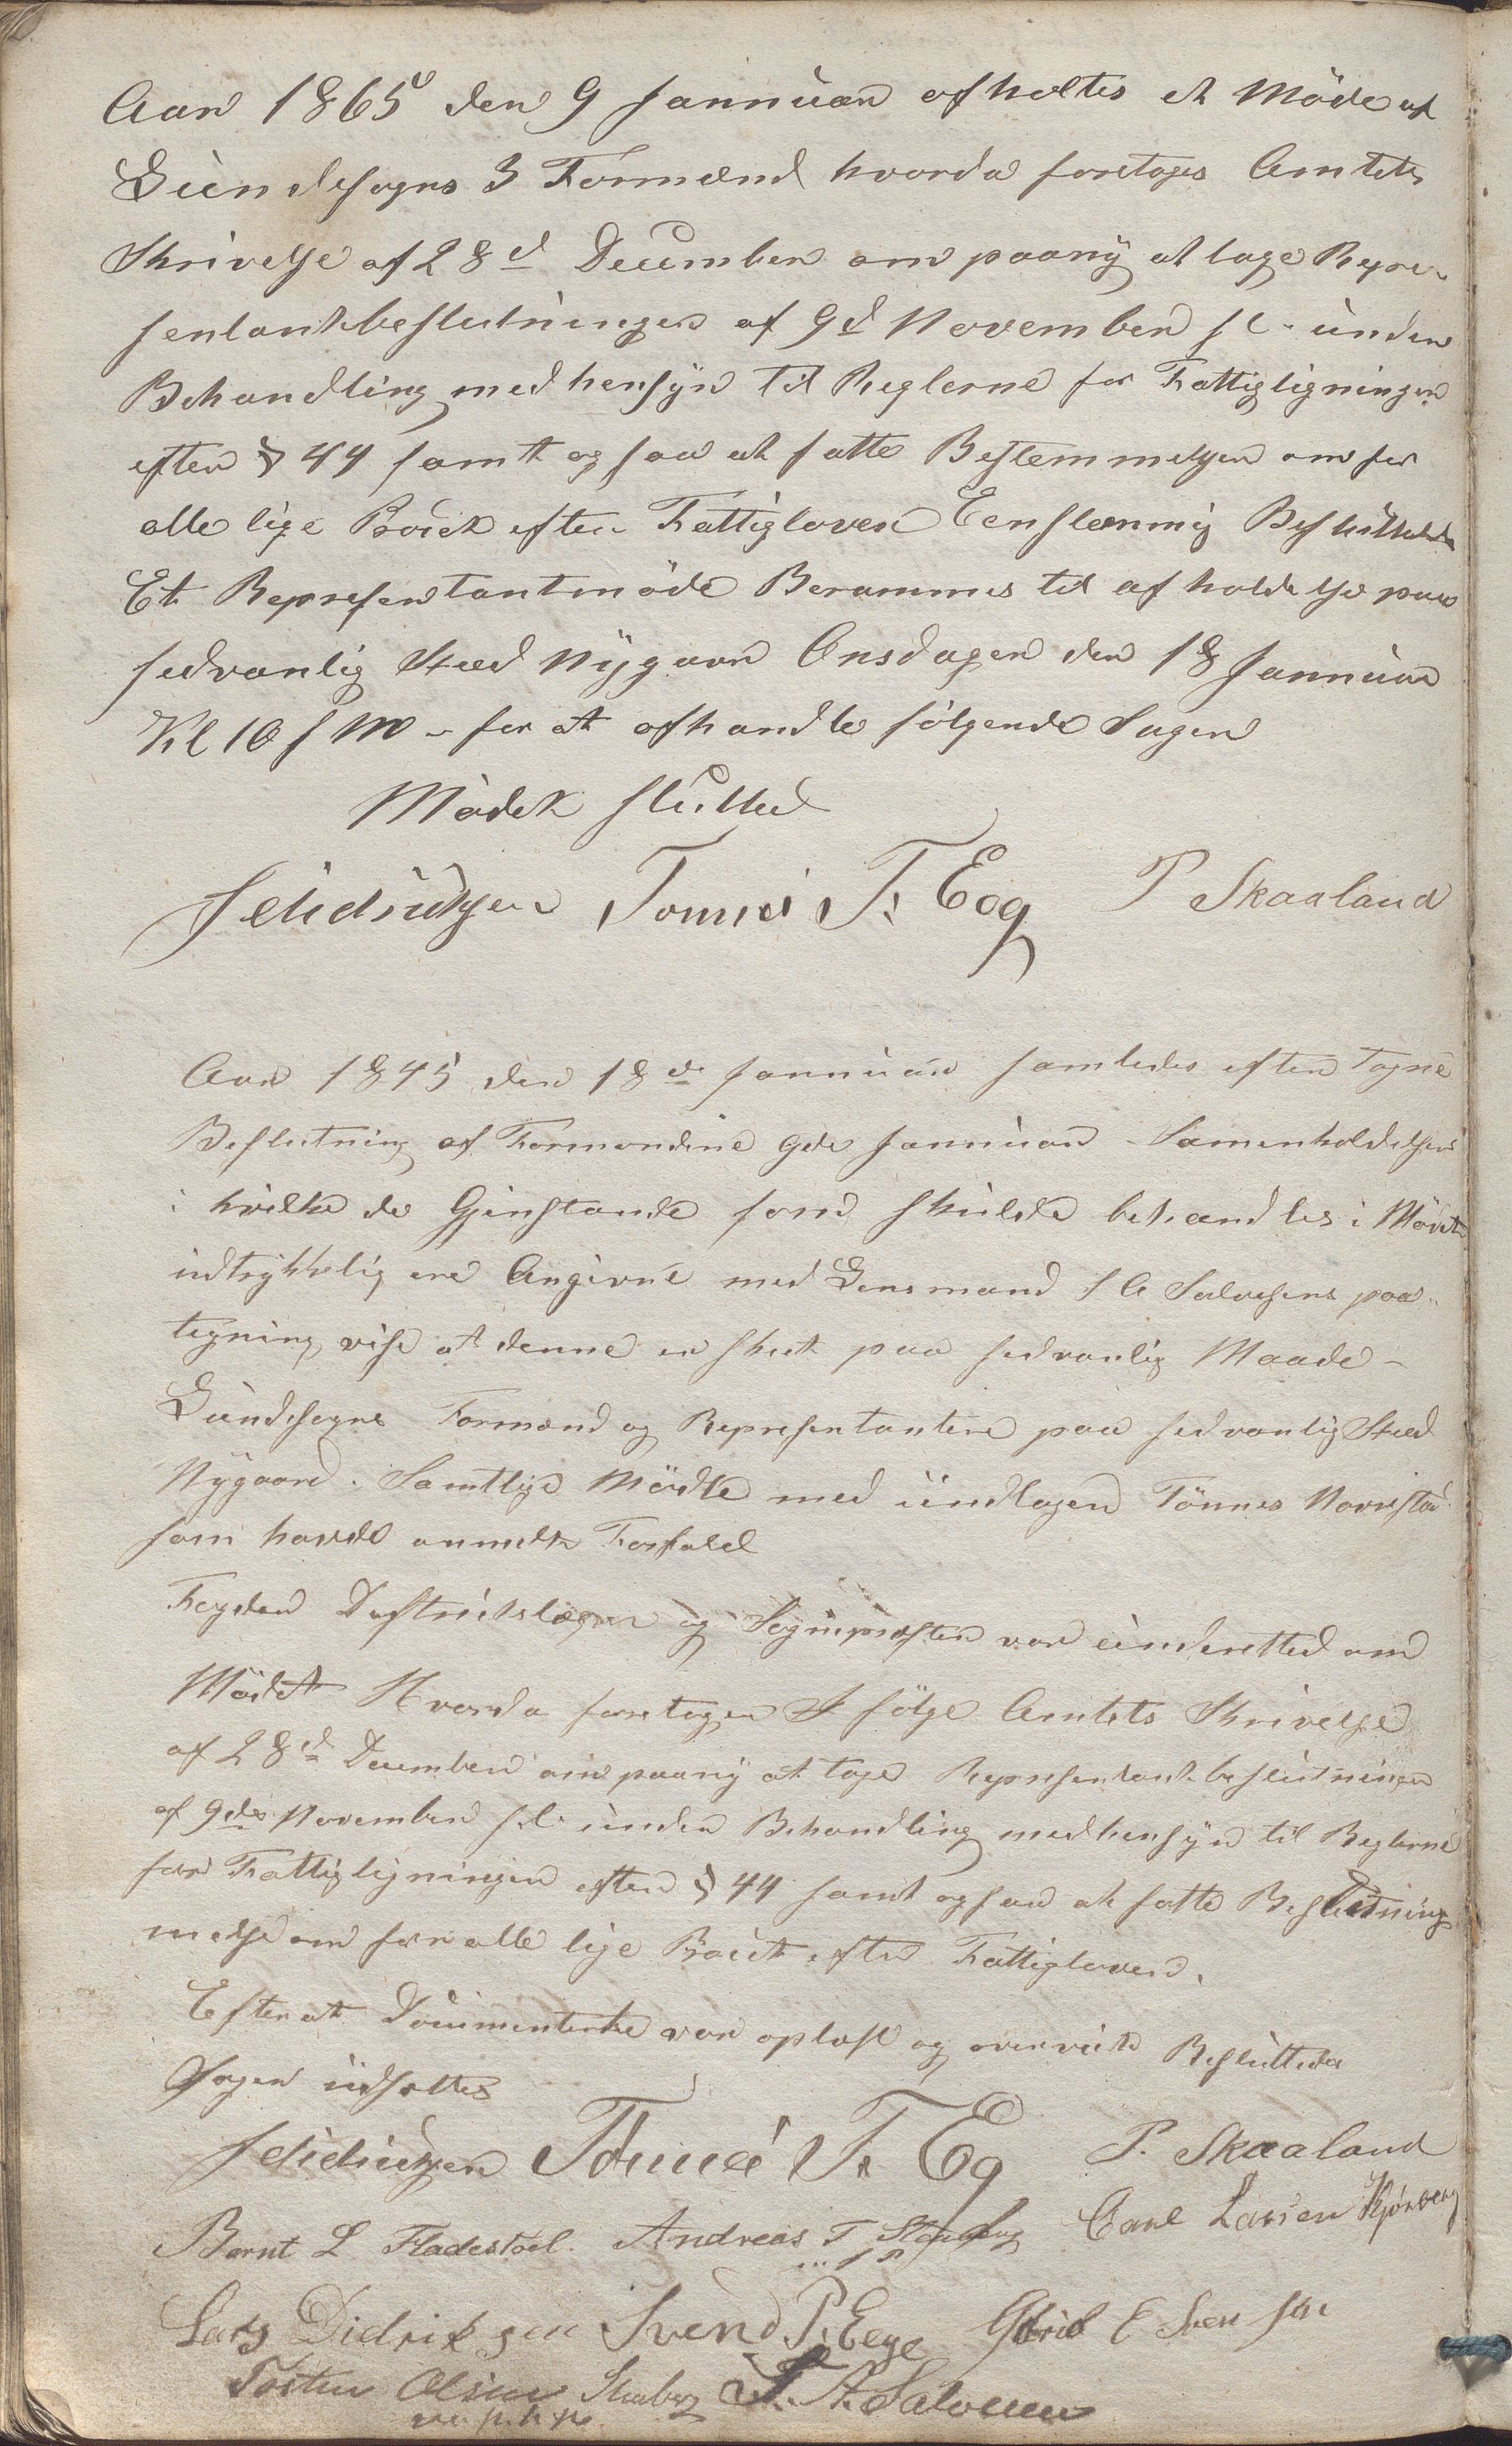 Aar 1865 den 9 Januar afholtes et Møde af
Lundesogns 3 Formænd hvorda foretoges Amtets
Skrivelse af 28d December om paany at tage Repre-
sentantbeslutningen af 9d November f. A. under
Behandling med hensyn til Reglerne for Fattigligningen
efter § 44 samt ogsaa at fatte Bestemmelsen om for
alle lige Brøck efter Fattigloven Eenstemmig Besluttedes
Et Representantmøde Berammes til afholdelse paa
sedvanlig Sted Nygaard Onsdagen den 18 Januar
Kl 10 f M - for at afhandle følgende Sager
Mødet slutted
Tønnes T. Eeg P Skaaland
Aar 1845 den 18de Januar samledes efter Tagne
Beslutning af Formændene 9de Januar - Samenholdelsen
i hvilke de Gjenstande som skulde behandles i Mødet
udtrykkelig ere Angivne med Lensmand S A Salvesens paa-
tegning vise at denne er skeet paa sedvanlig Maade -
Lundesogns Formænd og Representantere paa sedvanlig Sted
Nygaard. Samtlige Mødte med undtagen Tønnes Navrestad
som havde anmelt Forfald
Fogden Distriktslægen og Sognepresten var underetted om
Mødet Hvorda foretages I følge Amtets Skrivelse
af 28d December om paany at tage Representantbeslutningen
af 9de November f. A. under Behandling med hensyn til Reglerne
for Fattigligningen efter § 44 samt ogsaa at fatte Beslutning
melse om for alle lige Brøck efter Fattigloven.
Efter at Documenterne var oplæst og overveiet Besluttedes
Sagen udsættes
Tønnes T. Eeg P. Skaaland
Bernt L Fladestøel. Andreas T Carl Larsen Kjørberg
Lars Didriksen Svend P. Eege Gabriel E Svensen
Tosten Olsen S. A. Salvesen
m. p. h. p.